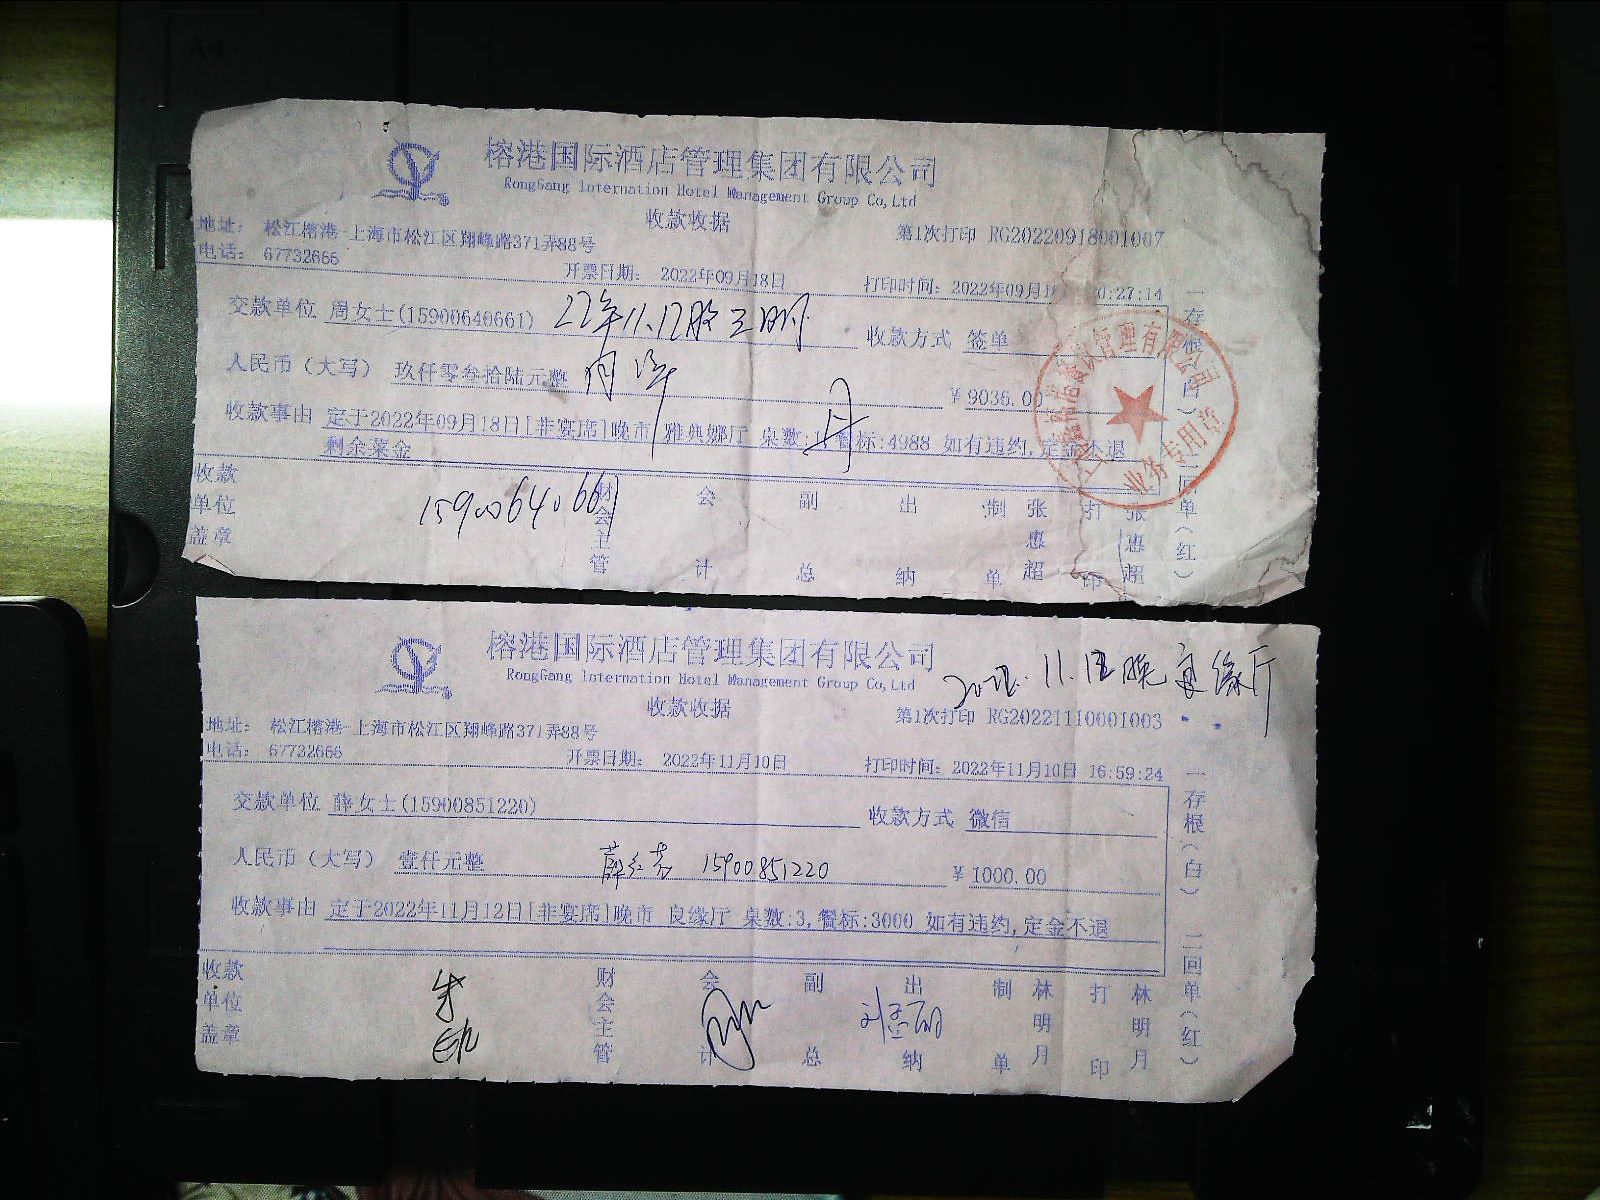 榕港国际酒店管理集团有限公司
RongGang Internation Hotel Management Group Co,Ltd
收款收据
地址： 松江榕港-上海市松江区翔峰路371弄88号
第1次打印 RG20220918001007
电话： 67732666
开票日期： 2022年09月18日
打印时间：2022年09月1 20:27:14
交款单位 周女士(15900640661)
22年11.12
收款方式 签单
人民币（大写） 玖仟零叁拾陆元整
￥9036.00
收款事由 定于2022年09月18日[非宴席]晚市 雅典娜厅 桌数:1,餐标:4988 如有违约,定金不退
剩余菜金
收款单位盖章
15900640661
财会主管
会计
副总
出纳
制单
张惠超
打印
张惠超
一存根（白） 二回单（红）
管理有限公司
业务专用章
榕港国际酒店管理集团有限公司
RongGang Internation Hotel Management Group Co,Ltd
2022.11.12晚 良缘厅
收款收据
地址： 松江榕港-上海市松江区翔峰路371弄88号
第1次打印 RG20221110001003
电话： 67732666
开票日期： 2022年11月10日
打印时间：2022年11月10日 16:59:24
交款单位 薛女士(15900851220)
收款方式 微信
人民币（大写） 壹仟元整
15900851220
￥1000.00
收款事由 定于2022年11月12日[非宴席]晚市 良缘厅 桌数:3,餐标:3000 如有违约,定金不退
收款单位盖章
财会主管
会计
副总
出纳
制单
林明月
打印
林明月
一存根（白） 二回单（红）